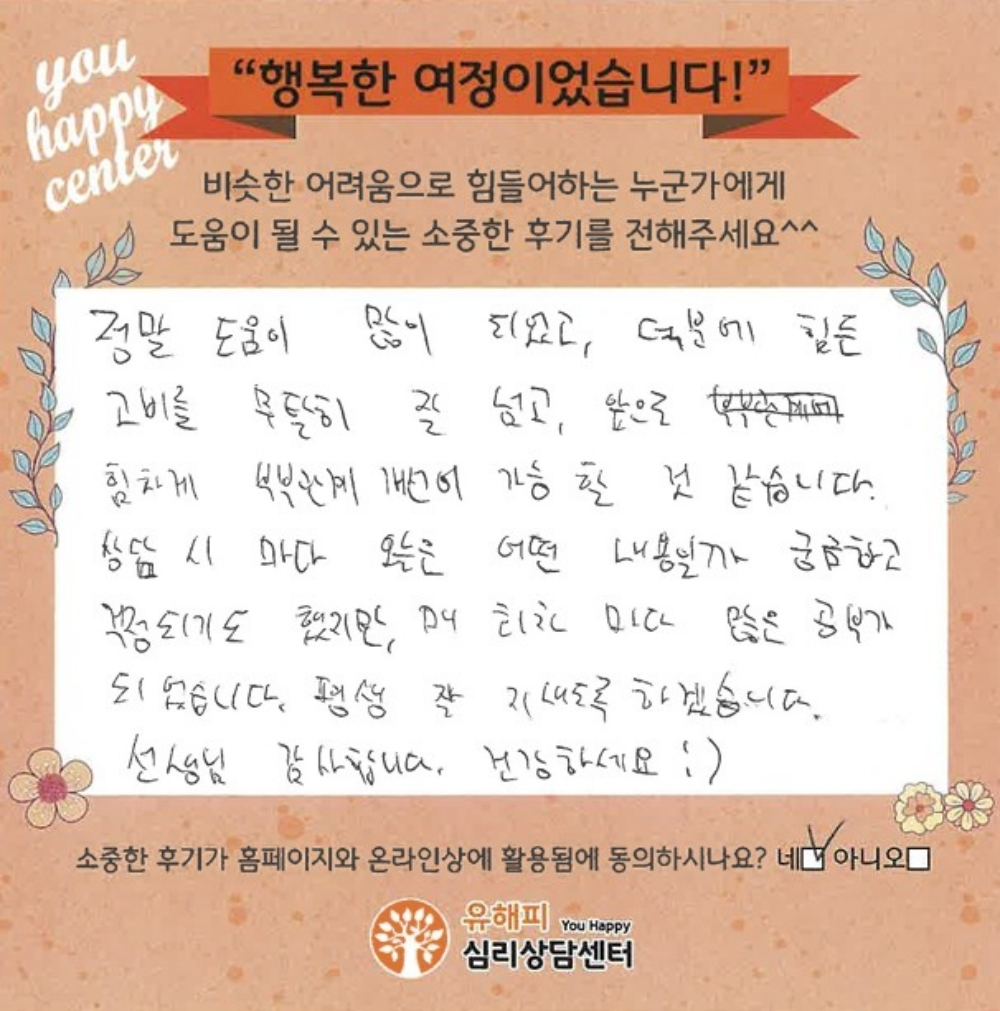 you
happy
center
“행복한 여정이었습니다!”
비슷한 어려움으로 힘들어하는 누군가에게
도움이 될 수 있는 소중한 후기를 전해주세요^^
정말 도움이 많이 되었고, 덕분에 힘든
고비를 무탈히 잘 넘고, 앞으로
힘차게 부부관계 개선이 가능 할 것 같습니다.
상담 시 마다 오늘은 어떤 내용일까 궁금하고
걱정되기도 했지만, 매 회차 마다 많은 공부가
되었습니다. 평생 잘 지내도록 하겠습니다.
선생님 감사합니다. 건강하세요 :)
소중한 후기가 홈페이지와 온라인상에 활용됨에 동의하시나요? 네☑ 아니오☐
유해피 You Happy
심리상담센터